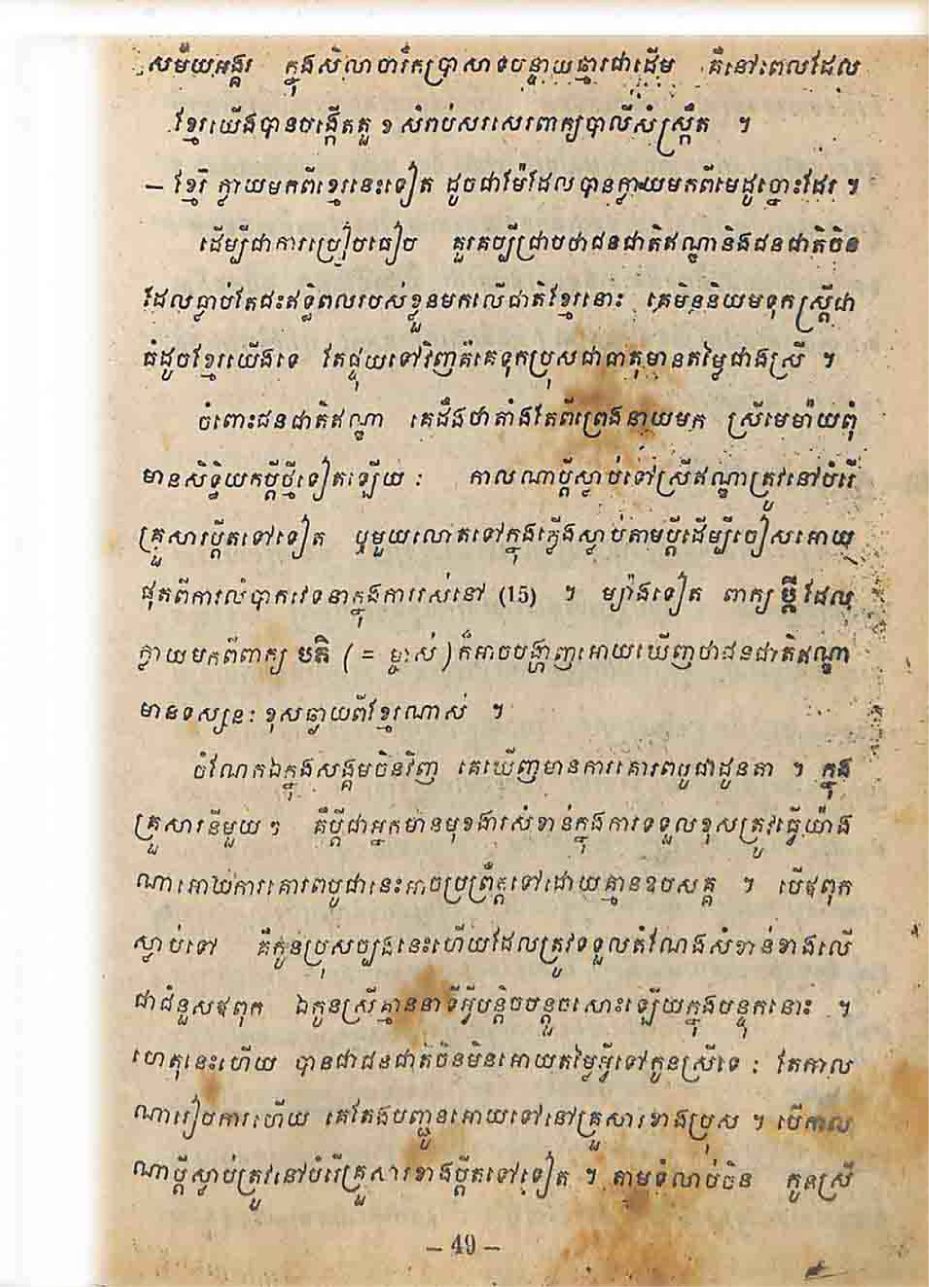 សម័យអង្គរ ក្នុងសិលាចារឹកប្រាសាទបន្ទាយឆ្មារជាដើម គឺនៅពេលដែល
ខ្មែរយើងបានបង្កើតតួ ខ សំរាប់សរសេរពាក្យបាលីសំស្ក្រឹត ។
– ខ្មែរិ ក្លាយមកពីខ្មេរនេះទៀត ដូចជាម៉ែដែលបានក្លាយមកពីមេដូច្នោះដែរ ។
ដើម្បីជាការប្រៀបធៀប គួរគប្បីជ្រាបថាជនជាតិឥណ្ឌានិងជនជាតិចិន
ដែលធ្លាប់តែជះឥទ្ធិពលរបស់ខ្លួនមកលើជាតិខ្មែរនោះ គេមិននិយមទុកស្ត្រីជា
ធំដូចខ្មែរយើងទេ តែផ្ទុយទៅវិញគឺគេទុកប្រុសជាធាតុមានតម្លៃជាងស្រី ។
ចំពោះជនជាតិឥណ្ឌា គេដឹងថាតាំងតែពីព្រេងនាយមក ស្រីមេម៉ាយពុំ
មានសិទ្ធិយកប្ដីថ្មីទៀតឡើយ : កាលណាប្ដីស្លាប់ទៅស្រីឥណ្ឌាត្រូវនៅបំរើ
គ្រួសារប្ដីតទៅទៀត ឬមួយលោតទៅក្នុងភ្លើងស្លាប់តាមប្ដីដើម្បីចៀសអោយ
ផុតពីការលំបាកវេទនាក្នុងការរស់នៅ (15) ។ ម្យ៉ាងទៀត ពាក្យ ប្ដី ដែល
ក្លាយមកពីពាក្យ បតិ ( = ម្ចាស់ ) ក៏អាចបង្ហាញអោយឃើញថាជនជាតិឥណ្ឌា
មានទស្សនៈ ខុសឆ្ងាយពីខ្មែរណាស់ ។
ចំណែកឯក្នុងសង្គមចិនវិញ គេឃើញមានការគោរពបូជាដូនតា ។ ក្នុង
គ្រួសារនីមួយៗ គឺប្ដីជាអ្នកមានមុខងារសំខាន់ក្នុងការទទួលខុសត្រូវធ្វើយ៉ាង
ណាអោយការគោរពបូជានេះអាចប្រព្រឹត្តទៅដោយគ្មានឧបសគ្គ ។ បើឪពុក
ស្លាប់ទៅ គឺកូនប្រុសច្បងនេះហើយដែលត្រូវទទួលតំណែងសំខាន់ខាងលើ
ជាជំនួសឪពុក ឯកូនស្រីគ្មាននាទីអ្វីបន្តិចបន្តួចសោះឡើយក្នុងបន្ទុកនោះ ។
ហេតុនេះហើយ បានជាជនជាតិចិនមិនអោយតម្លៃអ្វីទៅកូនស្រីទេ : តែកាល
ណារៀបការហើយ គេតែងបញ្ជូនអោយទៅនៅគ្រួសារខាងប្រុស ។ បើកាល
ណាប្ដីស្លាប់ត្រូវនៅបំរើគ្រួសារខាងប្ដីតទៅទៀត ។ តាមទំលាប់ចិន កូនស្រី
– 49 –